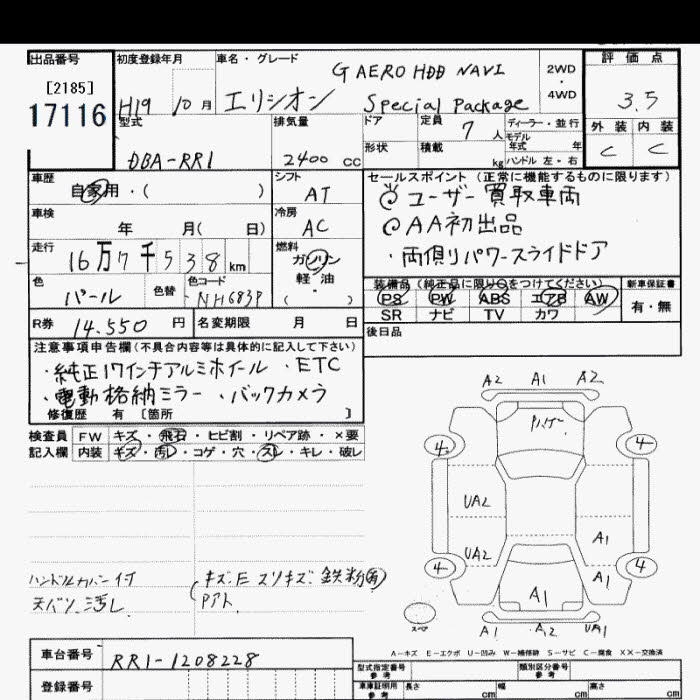 出品番号
[2185]
17116
初度登録年月
H19 10月
車名・グレード
G AERO HDD NAVI
エリシオン Special Package
2WD
・
4WD
評価点
3.5
外装 内装
C C
型式
DBA-RR1
排気量
2400 cc
ドア
定員 7 人
ディーラー・並行
モデル
年式 年
形状
積載 kg
ハンドル 左・右
車歴
自家用・( )
シフト
AT
車検
年 月( 日)
冷房
AC
走行
16万7千538 km
燃料
ガソリン
軽・油
( )
色
パール
色替
色コード
NH683P
R券 14.550 円
名変期限 月 日
セールスポイント(正常に機能するものに限ります)
◎ユーザー買取車両
◎AA初出品
・両側りパワースライドドア
装備品(純正品に限り○をつけてください)
PS PW ABS エアB AW
SR ナビ TV カワ
新車保証書
有・無
後日品
注意事項申告欄(不具合内容等は具体的に記入して下さい)
・純正17インチアルミホイール ・ETC
・電動格納ミラー ・バックカメラ
修復歴 有 [箇所 ]
検査員
記入欄
FW キズ・飛石・ヒビ割・リペア跡・×要
内装 キズ・汚レ・コゲ・穴・スレ・キレ・破レ
ハンドルカバー付
天バリ 汚レ
(キズ・E スリキズ・鉄粉有
Pアト
A2 A1 A2
4 4
UA2
UA2
A1
A1
4 4
A1
スペア
A1 A2 UA1
A-キズ E-エクボ U-凹み W-補修跡 S-サビ C-腐食 XX-交換済
車台番号
RR1-1208228
登録番号
型式指定番号
参考
類別区分番号
参考
車庫証明用
参考
長さ cm
幅 cm
高さ cm